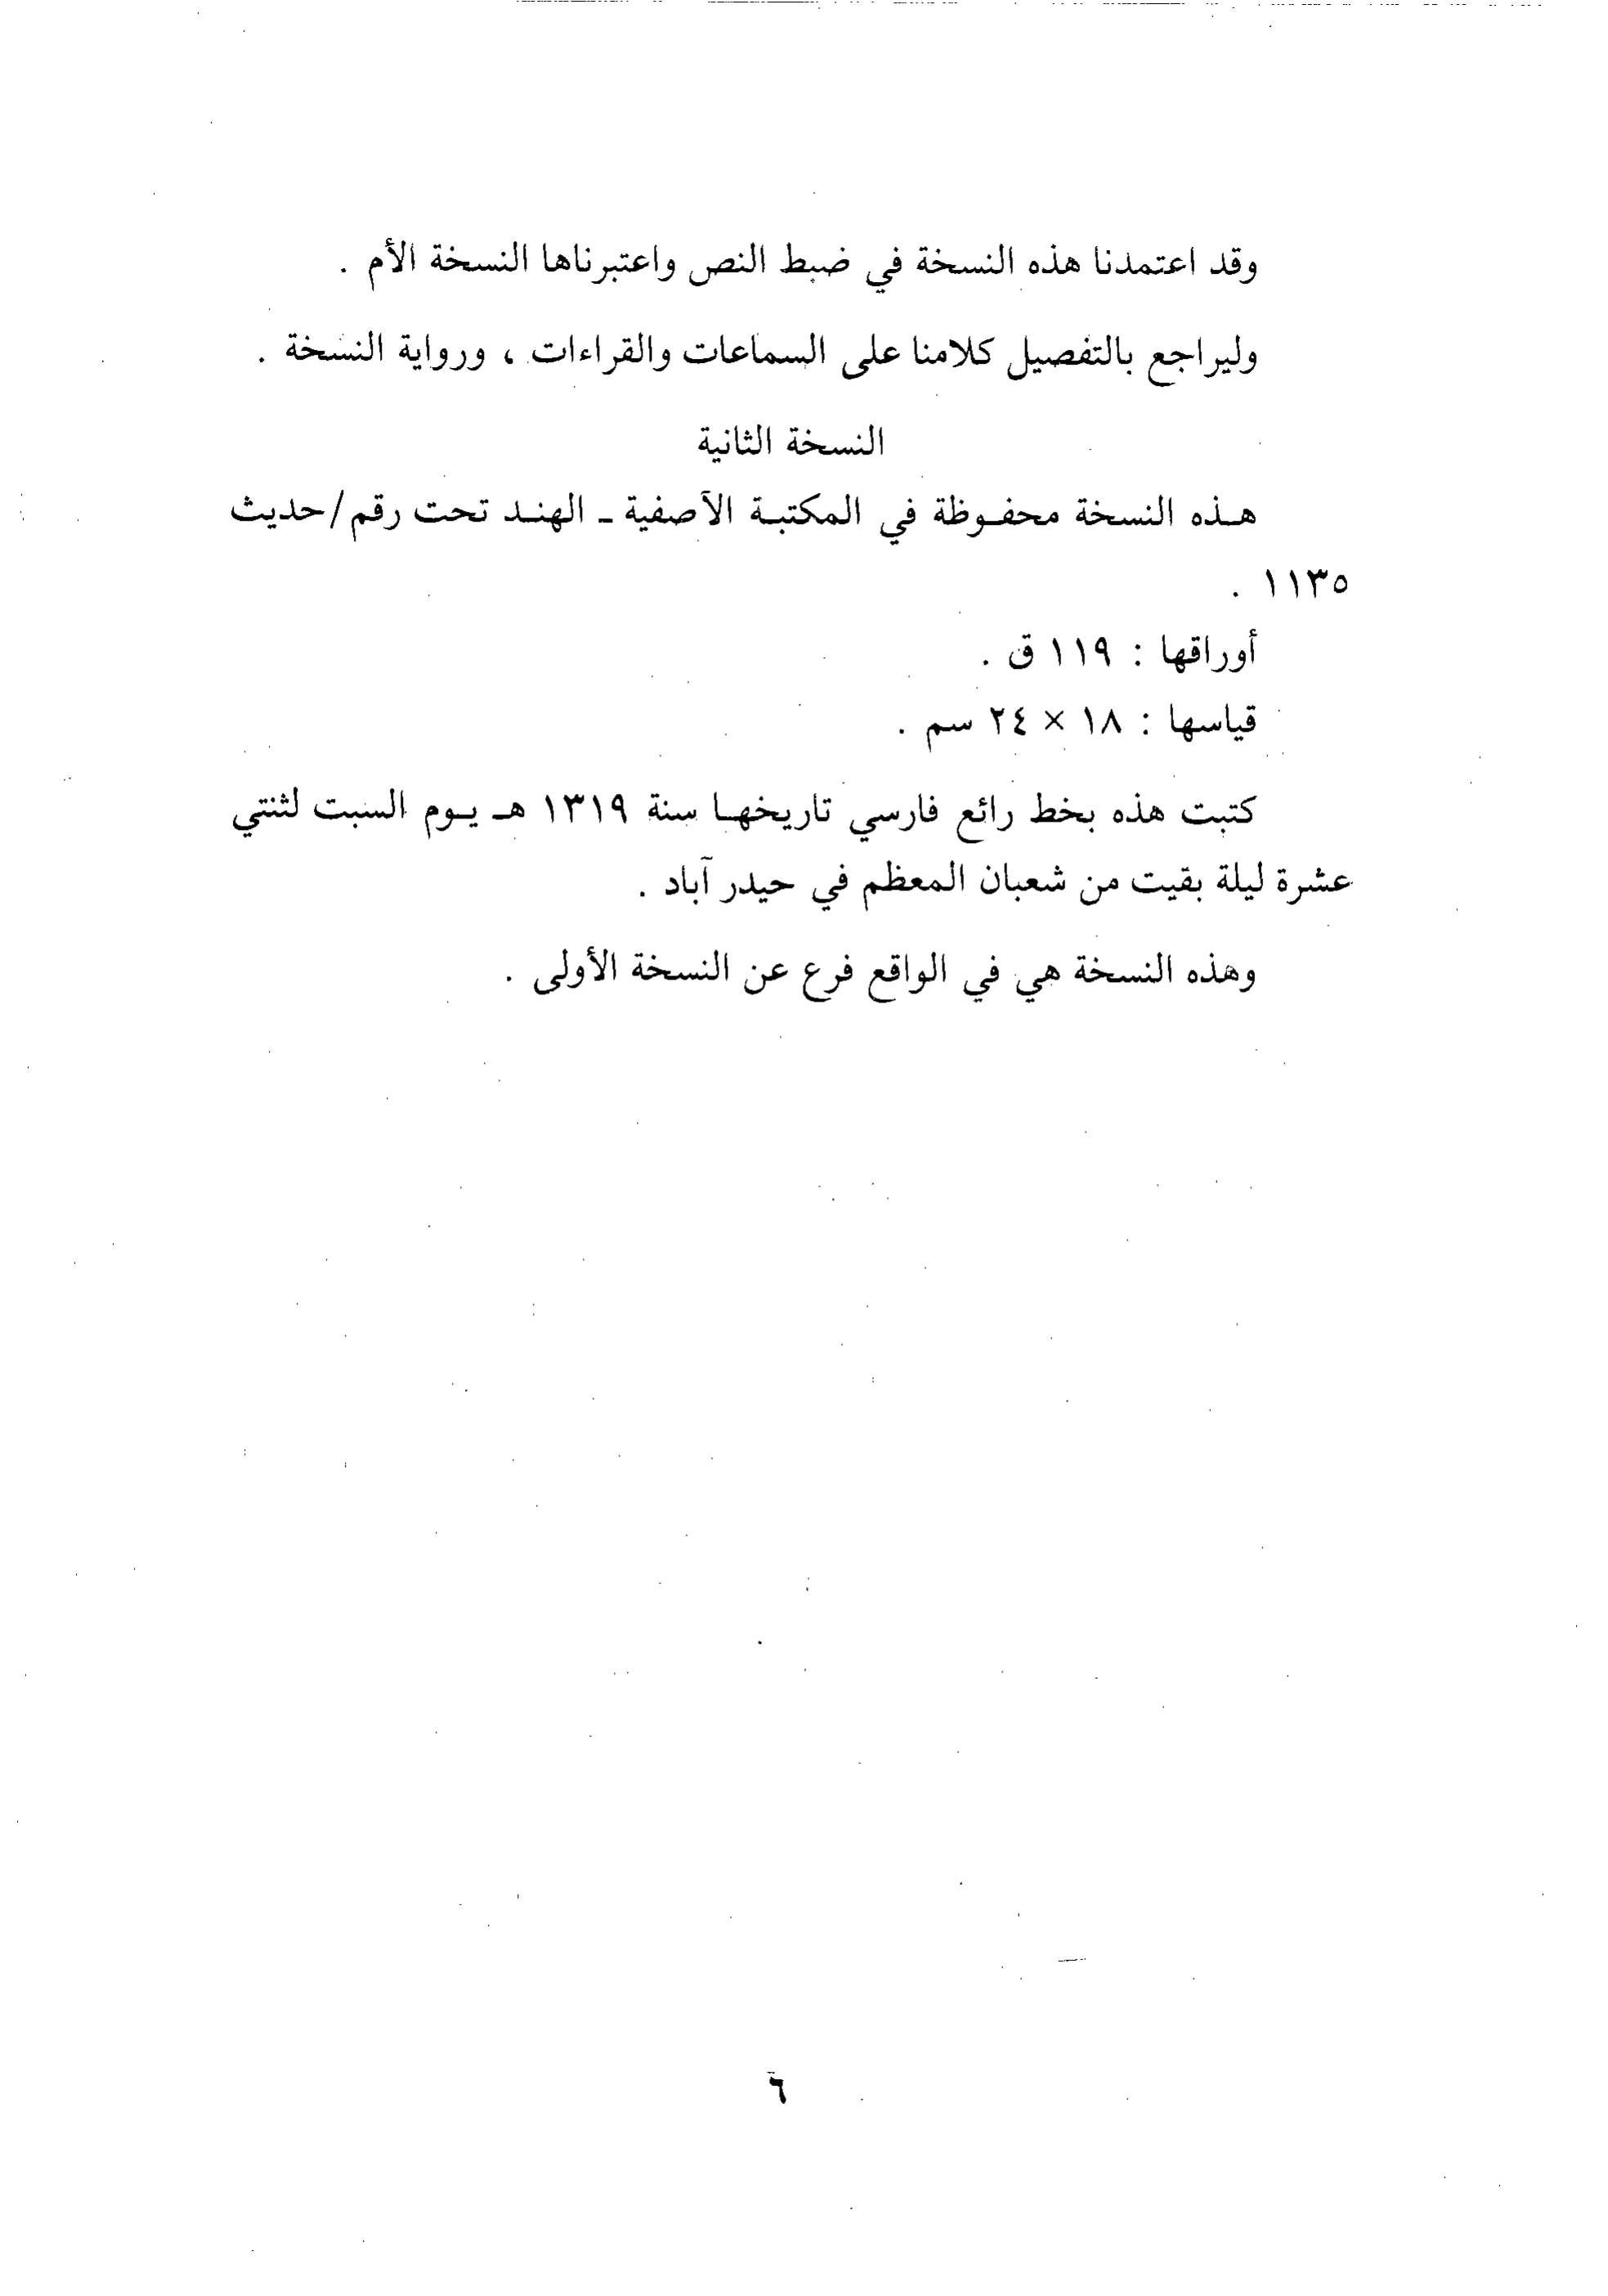 وقد اعتمدنا هذه النسخة في ضبط النص واعتبرناها النسخة الأم .
وليراجع بالتفصيل كلامنا على السماعات والقراءات ، ورواية النسخة .
النسخة الثانية
هـذه النسخة محفـوظة في المكتبـة الآصفية ـ الهنـد تحت رقم/حديث
١١٣٥ .
أوراقها : ١١٩ ق .
قياسها : ١٨ × ٢٤ سم .
كتبت هذه بخط رائع فارسي تاريخهـا سنة ١٣١٩ هـ يـوم السبت لثنتي
عشرة ليلة بقيت من شعبان المعظم في حيدر آباد .
وهذه النسخة هي في الواقع فرع عن النسخة الأولى .
٦